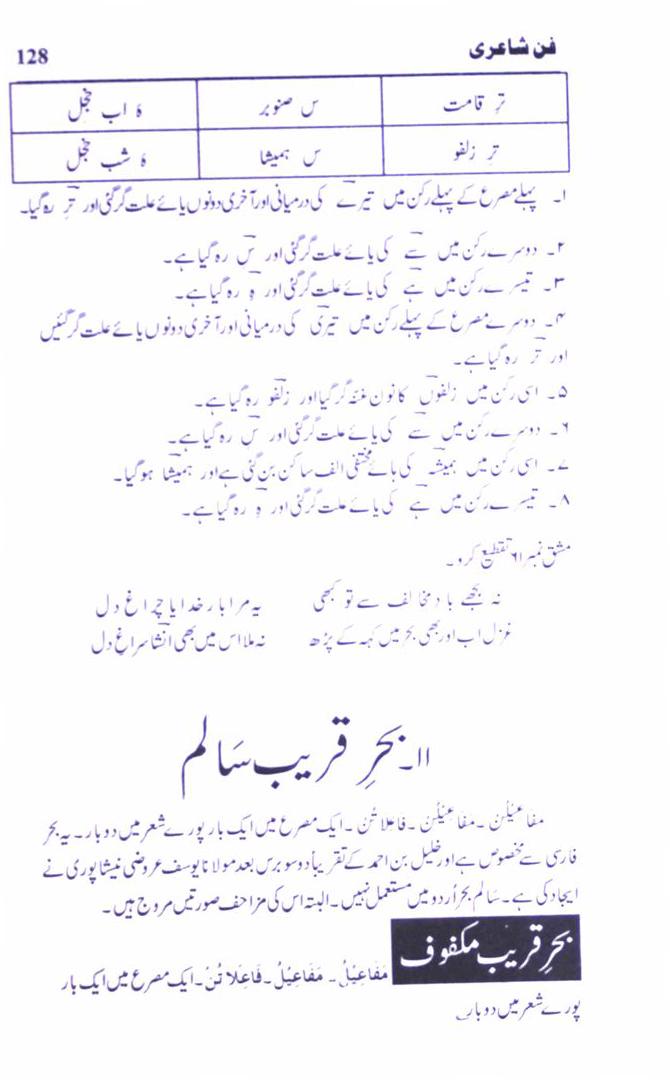 فن شاعری 128
ترِ قامت س صنوبر ہُ اب خجل
تر زلفو س ہمیشا ہُ شب خجل
۱۔ پہلے مصرع کے پہلے رکن میں تیرے کی درمیانی اور آخری دونوں یائے علت گر گئی اور ترِ رہ گیا۔
۲۔ دوسرے رکن میں سے کی یائے علت گر گئی اور س رہ گیا ہے۔
۳۔ تیسرے رکن میں ہے کی یائے علت گر گئی اور ہِ رہ گیا ہے۔
۴۔ دوسرے مصرع کے پہلے رکن میں تیری کی درمیانی اور آخری دونوں یائے علت گر گئیں
اور تر رہ گیا ہے۔
۵۔ اسی رکن میں زلفوں کا نون غنہ گر گیا اور زلفو رہ گیا ہے۔
۶۔ دوسرے رکن میں سے کی یائے علت گر گئی اور سِ رہ گیا ہے۔
۷۔ اسی رکن میں ہمیشہ کی ہائے مختفی الف ساکن بن گئی ہے اور ہمیشا ہو گیا۔
۸۔ تیسرے رکن میں ہے کی یائے علت گر گئی اور ہِ رہ گیا ہے۔
مشق نمبر ۶۱ تقطیع کرو۔
نہ بجھے باد مخالف سے تو کبھی یہ مرا بار خدایا چراغ دل
غزل اب اور بھی بحر میں کہہ کے پڑھ نہ ملا اس میں بھی انشا سراغِ دل
۱۱۔ بحرِ قریب سَالم
مفاعیلن۔ مفاعیلن۔ فاعلاتن۔ ایک مصرع میں ایک بار پورے شعر میں دو بار۔ یہ بحر
فارسی سے مخصوص ہے اور خلیل بن احمد کے تقریباً دو سو برس بعد مولانا یوسف عروضی نیشاپوری نے
ایجاد کی ہے۔ سالم بحر اُردو میں مستعمل نہیں۔ البتہ اس کی مزاحف صورتیں مروج ہیں۔
بحرِ قریب مکفوف مَفَاعِیْلُ۔ مَفَاعِیْلُ۔ فَاعِلَاتُنْ۔ ایک مصرع میں ایک بار
پورے شعر میں دو بار